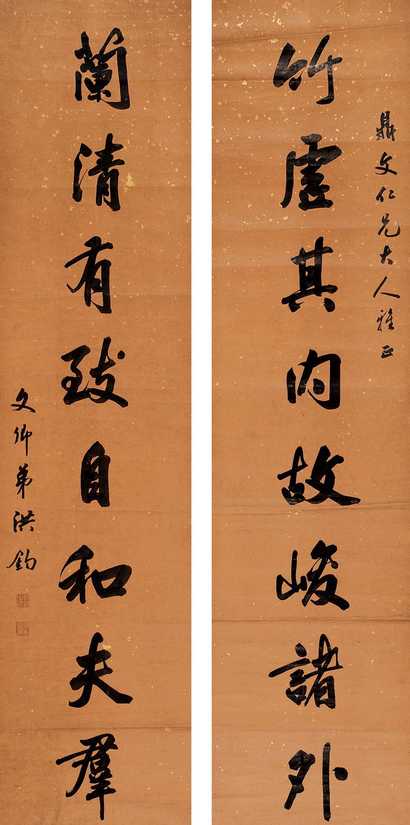 鼎文仁兄大人雅正
竹虚其内故峻諸外
蘭清有致自和夫羣
文卿弟洪鈞